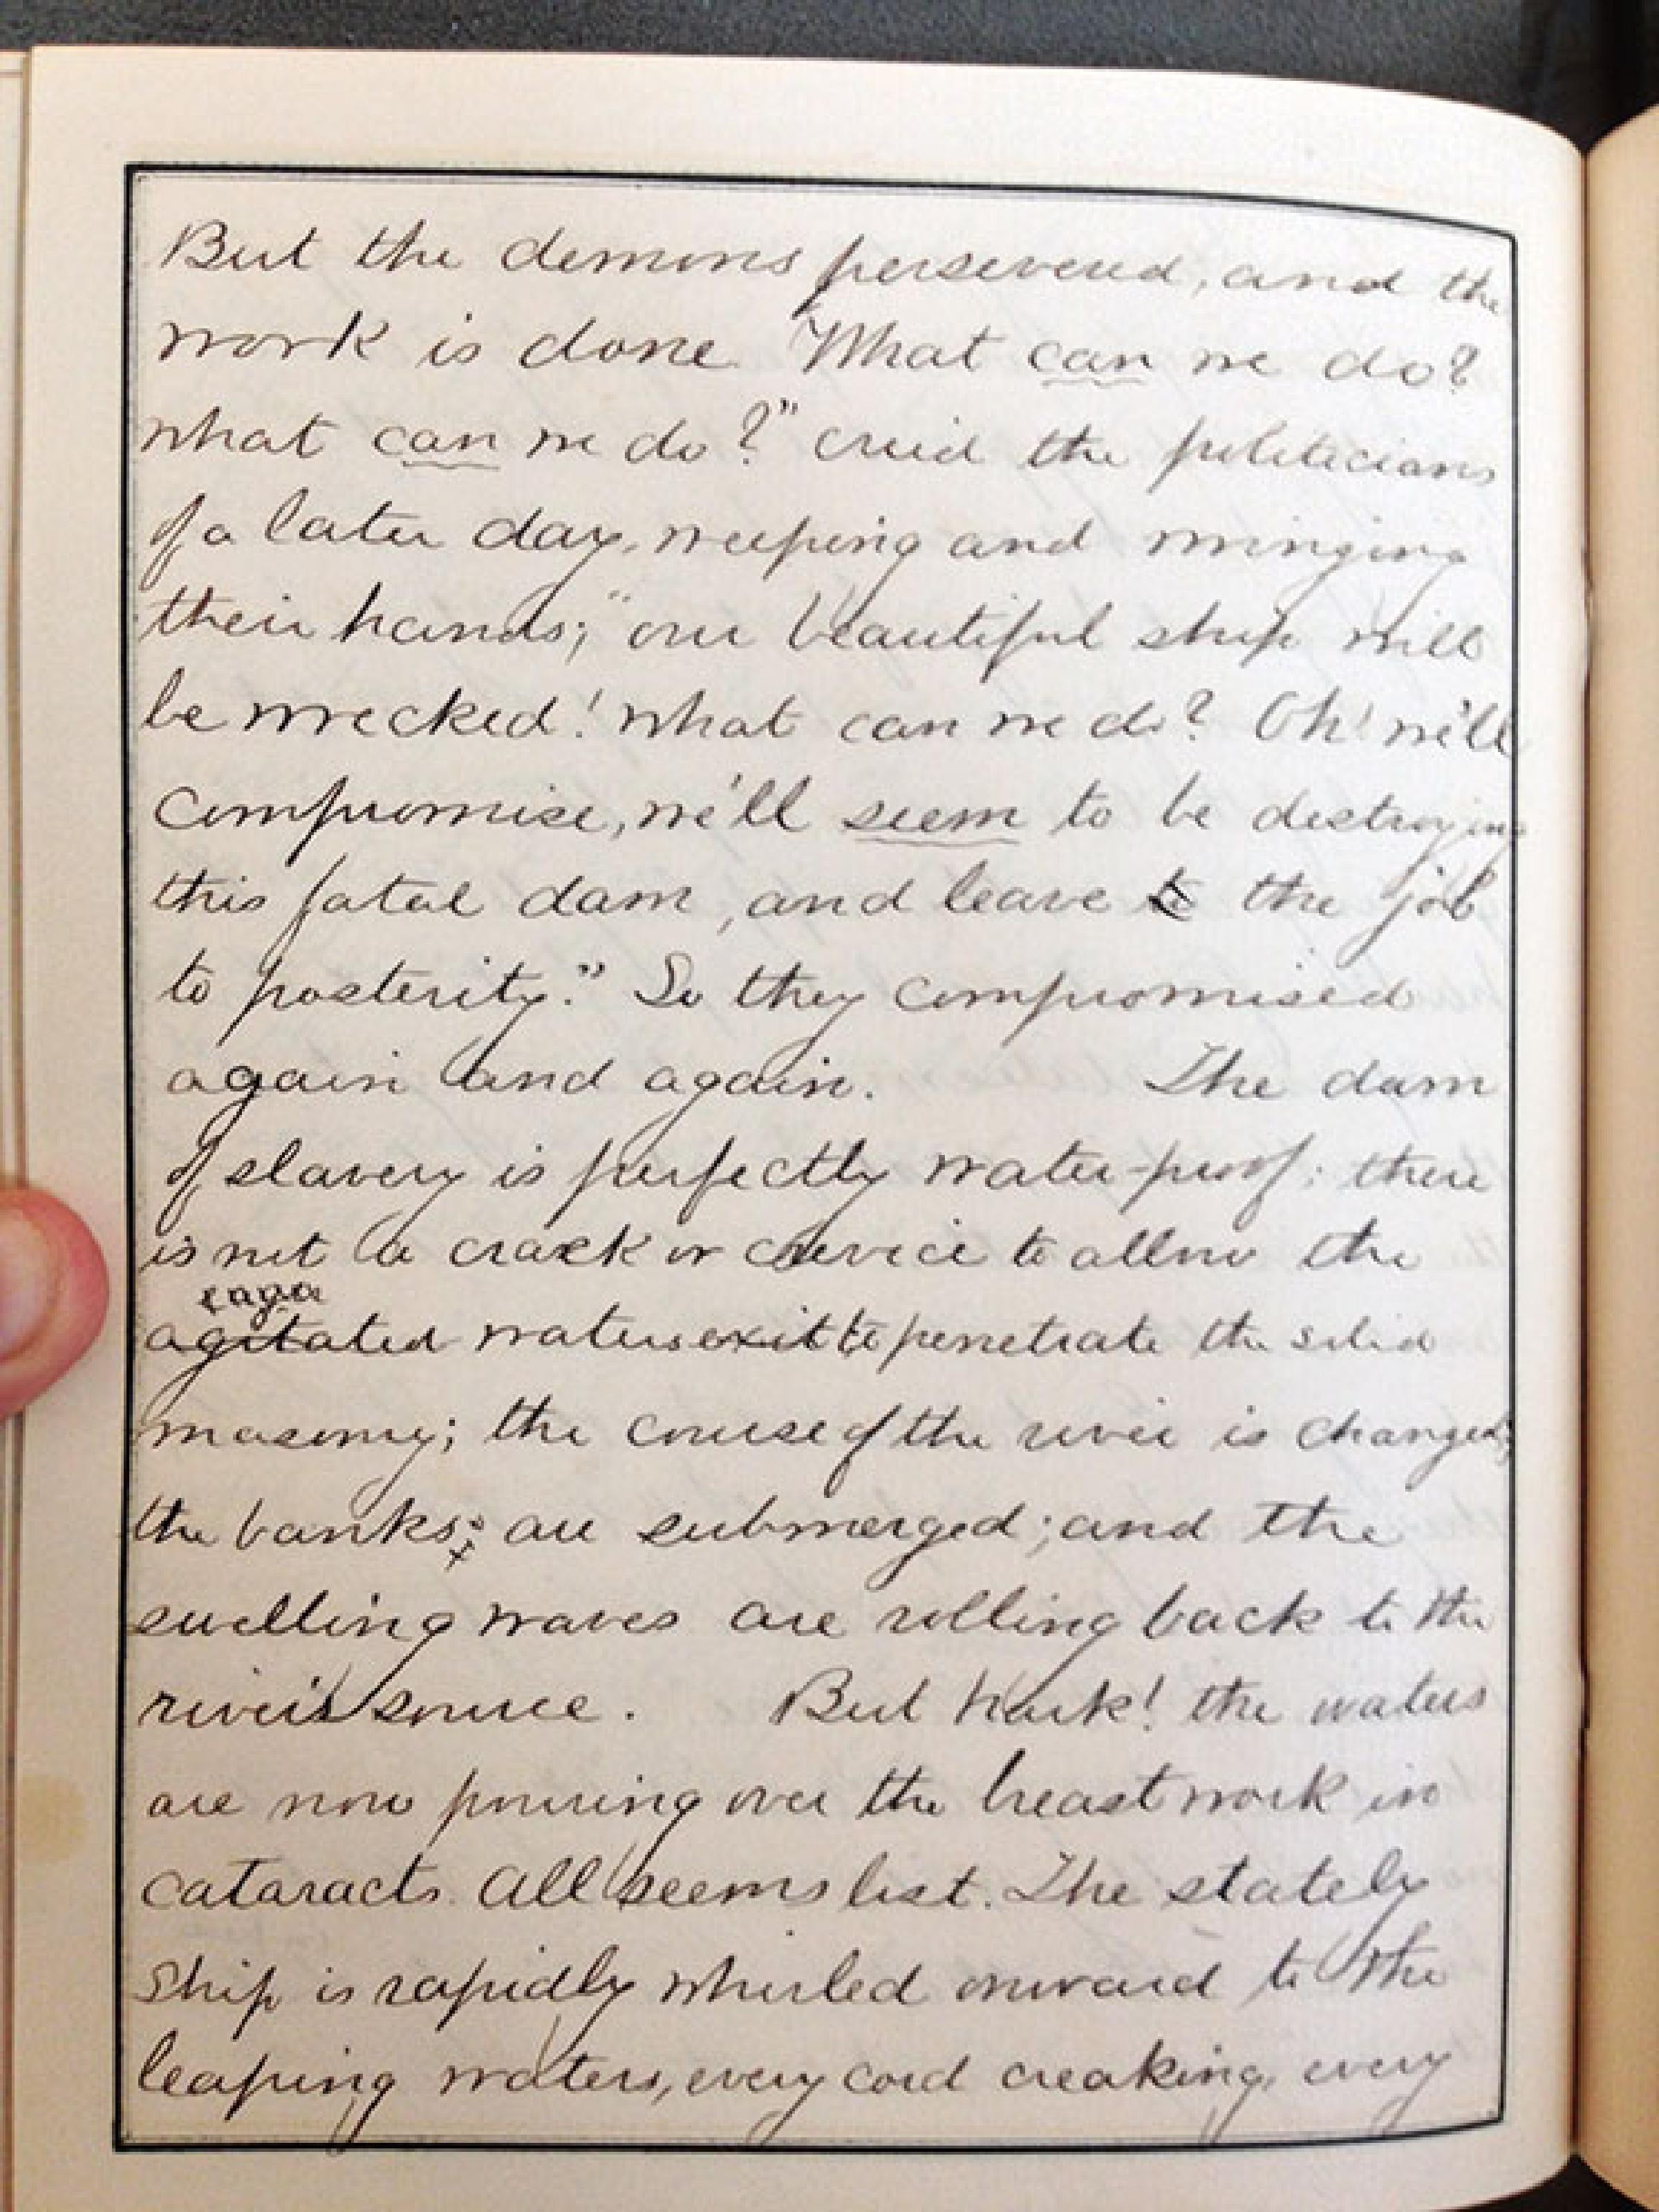 But the demons persevered, and the
work is done. "What can we do?
what can we do?" cried the politicians
of a later day, weeping and wringing
their hands; "our beautiful ship will
be wrecked! what can we do? Oh! we'll
compromise, we'll seem to be destroying
this fatal dam, and leave to the job
to posterity." So they compromised
again and again. The dam
of slavery is perfectly water-proof; there
is not a crack or crevice to allow the
agitated waters exit to penetrate the solid
masonry; the course of the river is changed;
the banks; are submerged; and the
swelling waves are rolling back to the
river's source. But hark! the waters
are now pouring over the breastwork in
cataracts. All seems lost. The stately
ship is rapidly whirled onward to the
leaping waters, every cord creaking, every